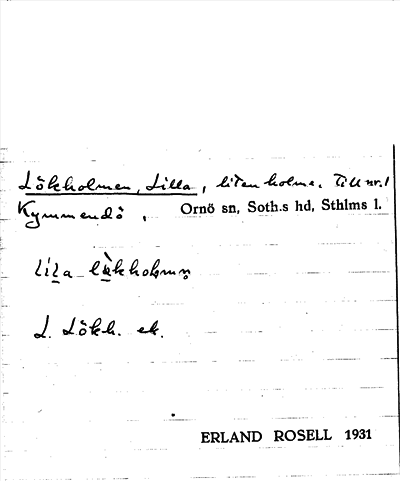 Lökholmen, Lilla, liten holme. Till nr. 1
Kymmendö. Ornö sn, Soth.s hd, Sthlms l.
lila
L. Lökh. ek.
ERLAND ROSELL 1931